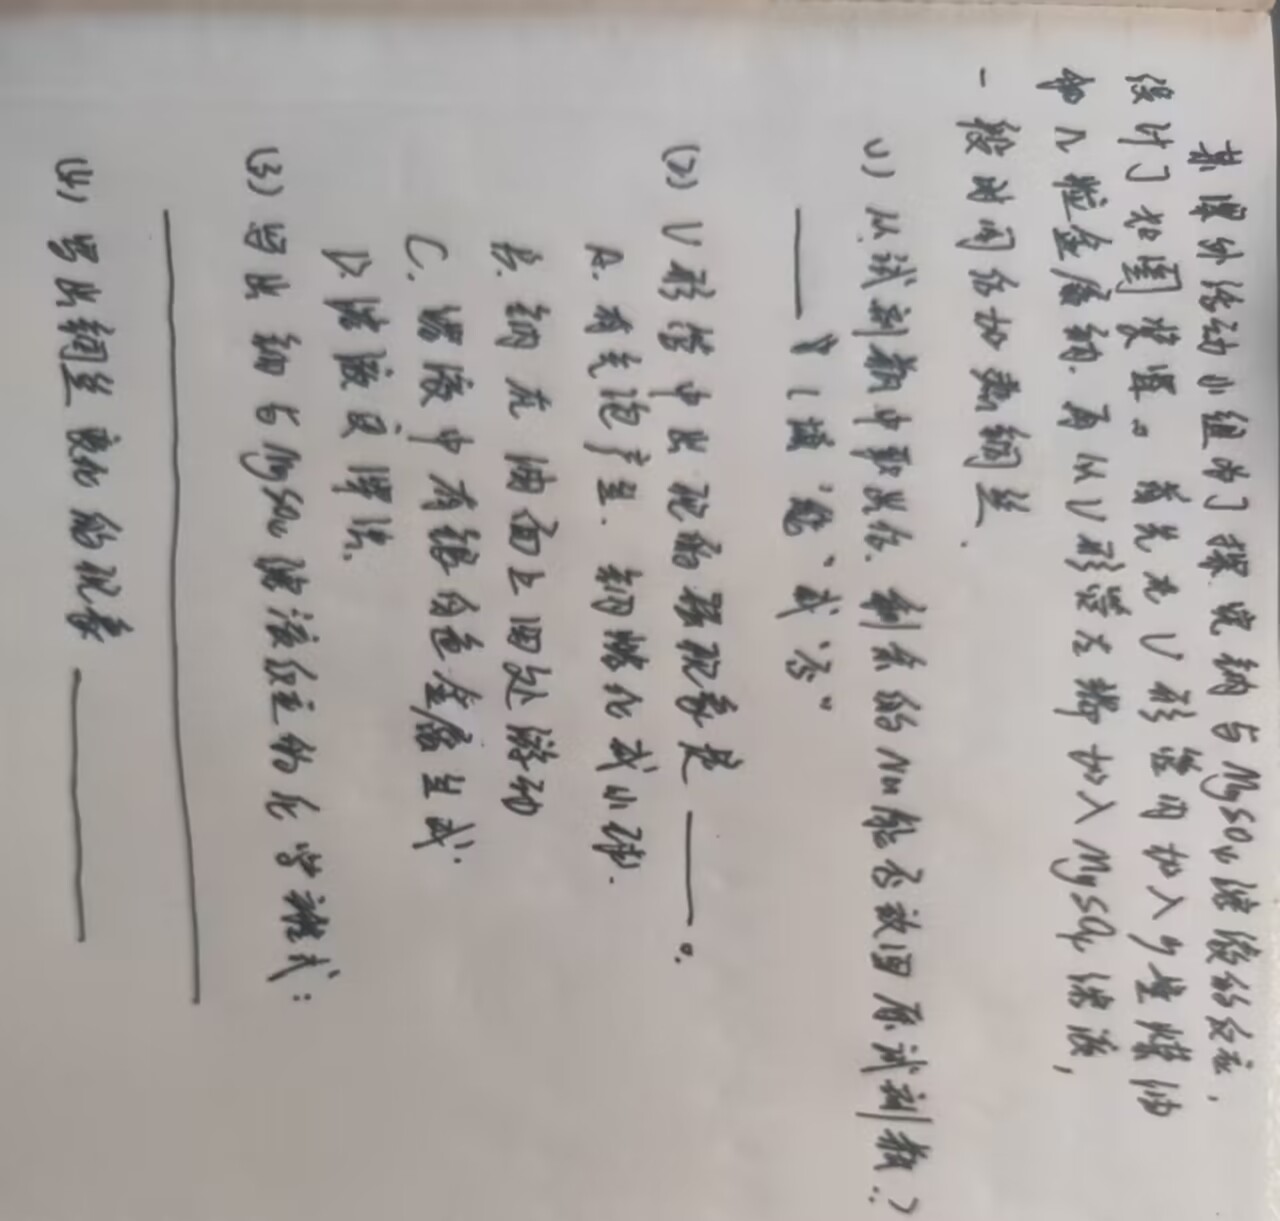 某课外活动小组为了探究钠与MgSO4溶液的反应,
设计了如图装置。首先在U形管内加入少量煤油
和几粒金属钠.再从U形管左端加入MgSO4溶液,
一段时间后加热铜丝.
(1) 从试剂瓶中取出后.剩余的Na能否放回原试剂瓶?
(填"能"或"否"
(2) U形管中出现的现象是 。
A. 有气泡产生.钠熔化成小球.
B. 钠在油面上四处游动
C. 溶液中有银白色金属生成.
D. 溶液变浑浊.
(3) 写出钠与MgSO4溶液反应的化学方程式:
(4) 写出铜丝变化的现象